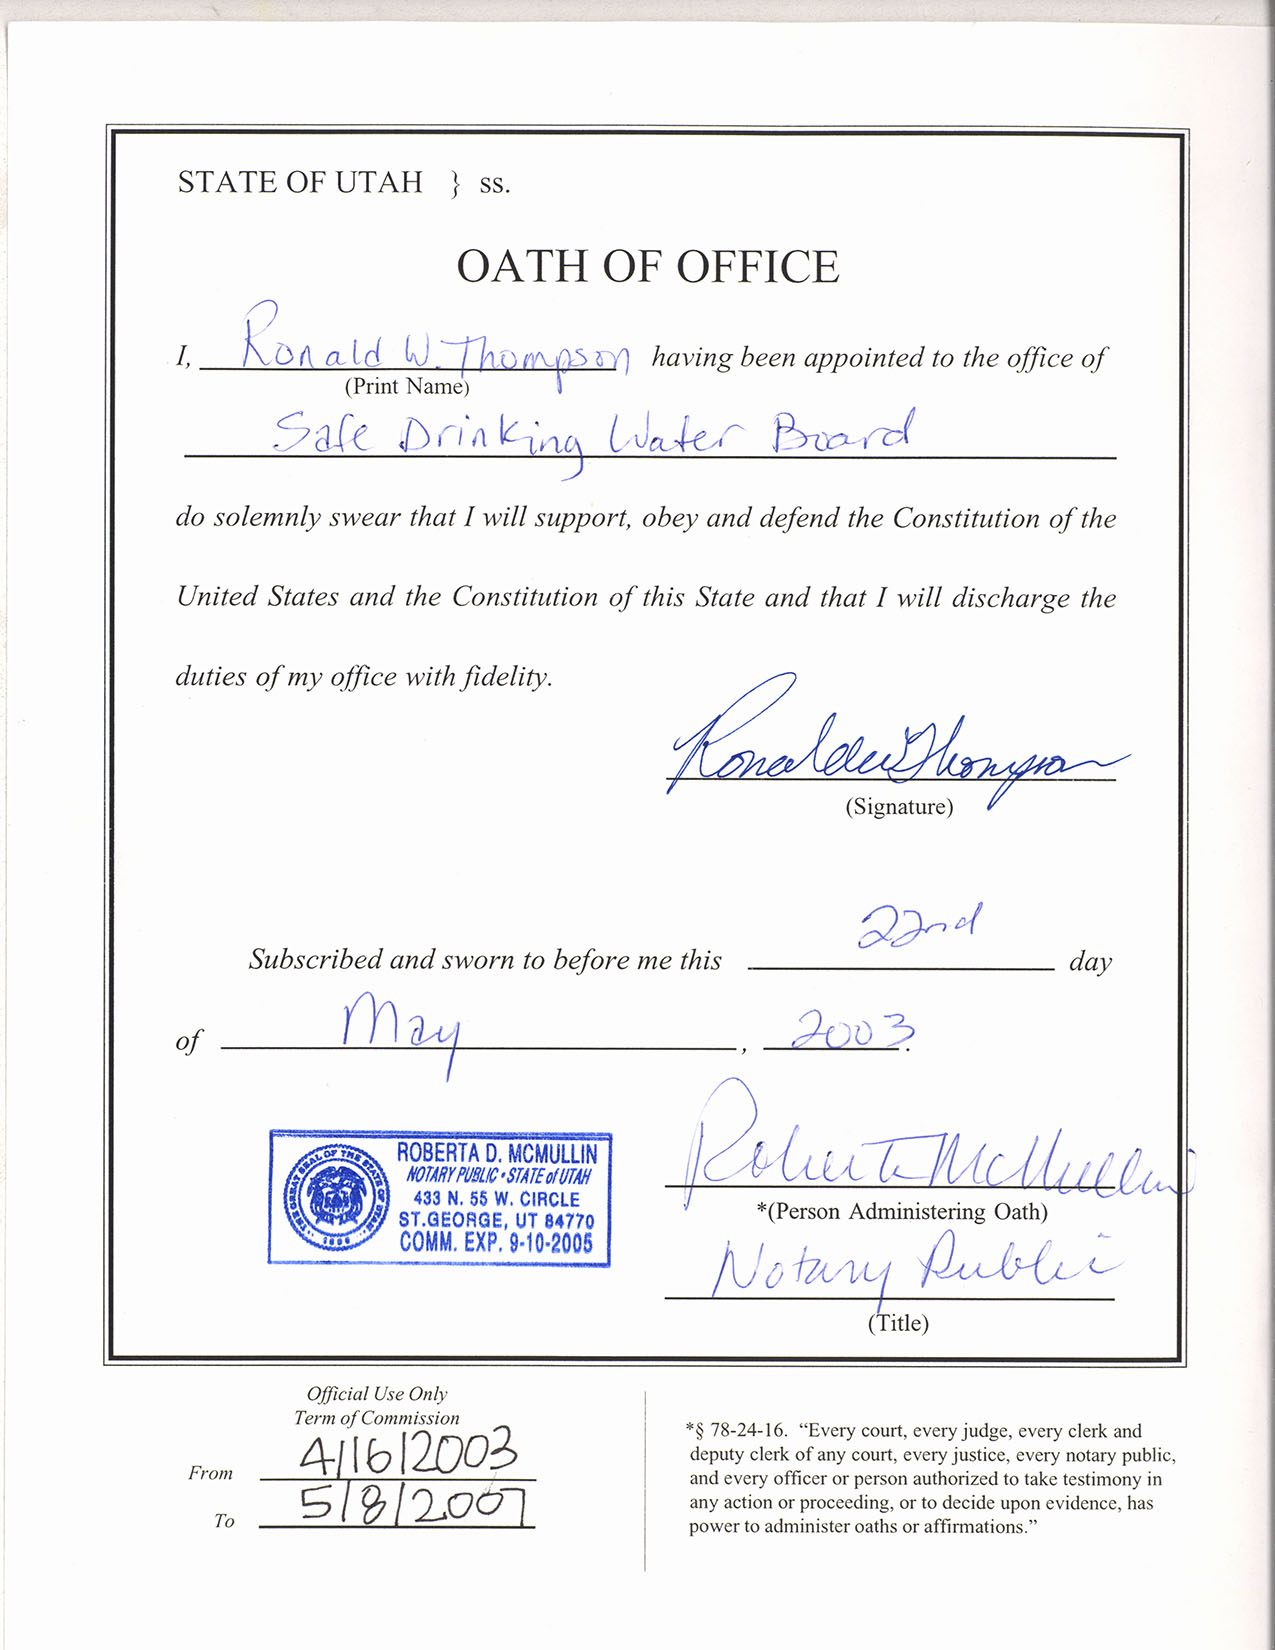 STATE OF UTAH } ss.
OATH OF OFFICE
I, Ronald W. Thompson having been appointed to the office of
(Print Name)
Safe Drinking Water Board
do solemnly swear that I will support, obey and defend the Constitution of the
United States and the Constitution of this State and that I will discharge the
duties of my office with fidelity.
Ronald W Thompson
(Signature)
Subscribed and sworn to before me this 22nd day
of May, 2003.
THE GREAT SEAL OF THE STATE OF UTAH
1896
ROBERTA D. MCMULLIN
NOTARY PUBLIC • STATE of UTAH
433 N. 55 W. CIRCLE
ST. GEORGE, UT 84770
COMM. EXP. 9-10-2005
Roberta McMullin
*(Person Administering Oath)
Notary Public
(Title)
Official Use Only
Term of Commission
From 4/16/2003
To 5/8/2007
*§ 78-24-16. “Every court, every judge, every clerk and
deputy clerk of any court, every justice, every notary public,
and every officer or person authorized to take testimony in
any action or proceeding, or to decide upon evidence, has
power to administer oaths or affirmations.”